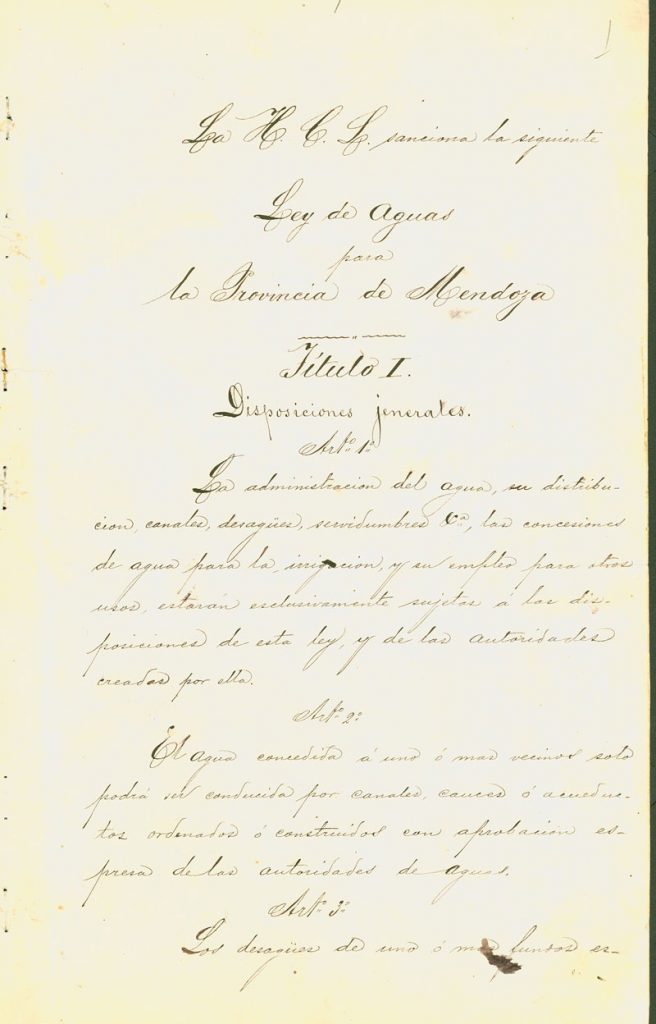 1
La H. C. L. sanciona la siguiente
Ley de Aguas
para
la Provincia de Mendoza
Título I.
Disposiciones jenerales.
Arto. 1o
La administracion del agua, su distribu-
cion, canales, desagües, servidumbres &a, las concesiones
de agua para la irrigacion, y su empleo para otros
usos, estarán esclusivamente sujetas á las dis-
posiciones de esta ley, y de las autoridades
creadas por ella.
Arto. 2o
El agua concedida á uno ó mas vecinos solo
podrá ser conducida por canales, cauces ó acueduc-
tos ordenados ó construidos con aprobacion es-
presa de las autoridades de aguas.
Arto. 3o
Los desagües de uno ó mas fundos es-